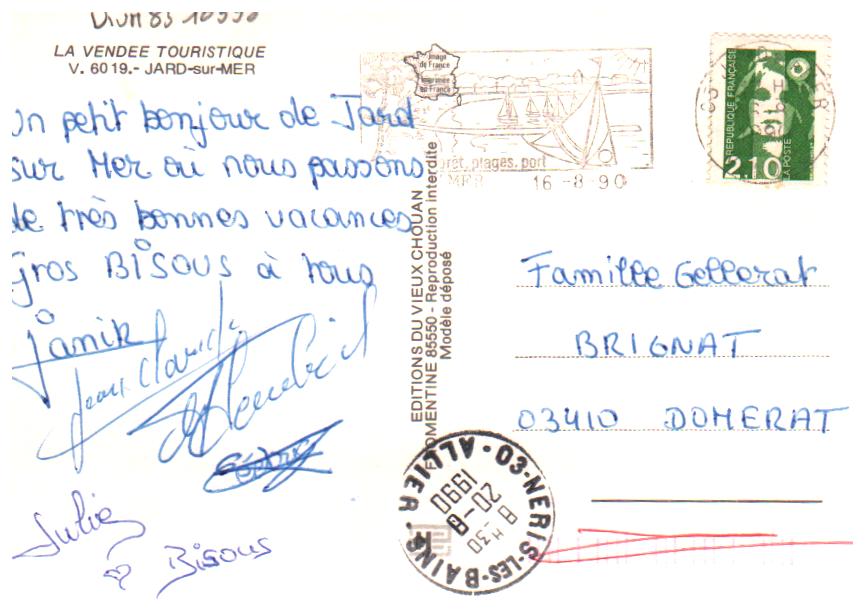 LA VENDEE TOURISTIQUE
V. 6019.- JARD-sur-MER
Un petit bonjour de Jard
sur Mer où nous passons
de très bonnes vacances
gros BISOUS à tous
Janik
Jean Claude
Cédric
Julie
Bisous
EDITIONS DU VIEUX CHOUAN
FROMENTINE 85550 - Reproduction interdite
Modèle déposé
Image
de France
Imprimée
en France
forêt, plages, port
MER
16-8-90
RÉPUBLIQUE FRANÇAISE
2,10
LA POSTE
Famille Gellerat
BRIGNAT
03410 DOMERAT
03-NERIS-LES-BAINS
ALLIER
8 H 30
20-8
1990